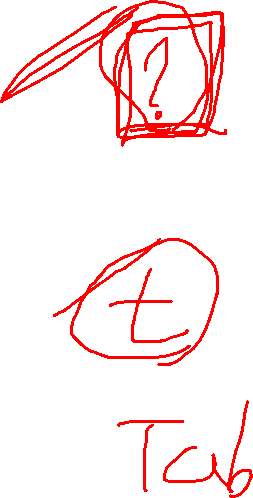 ?
t
Tab